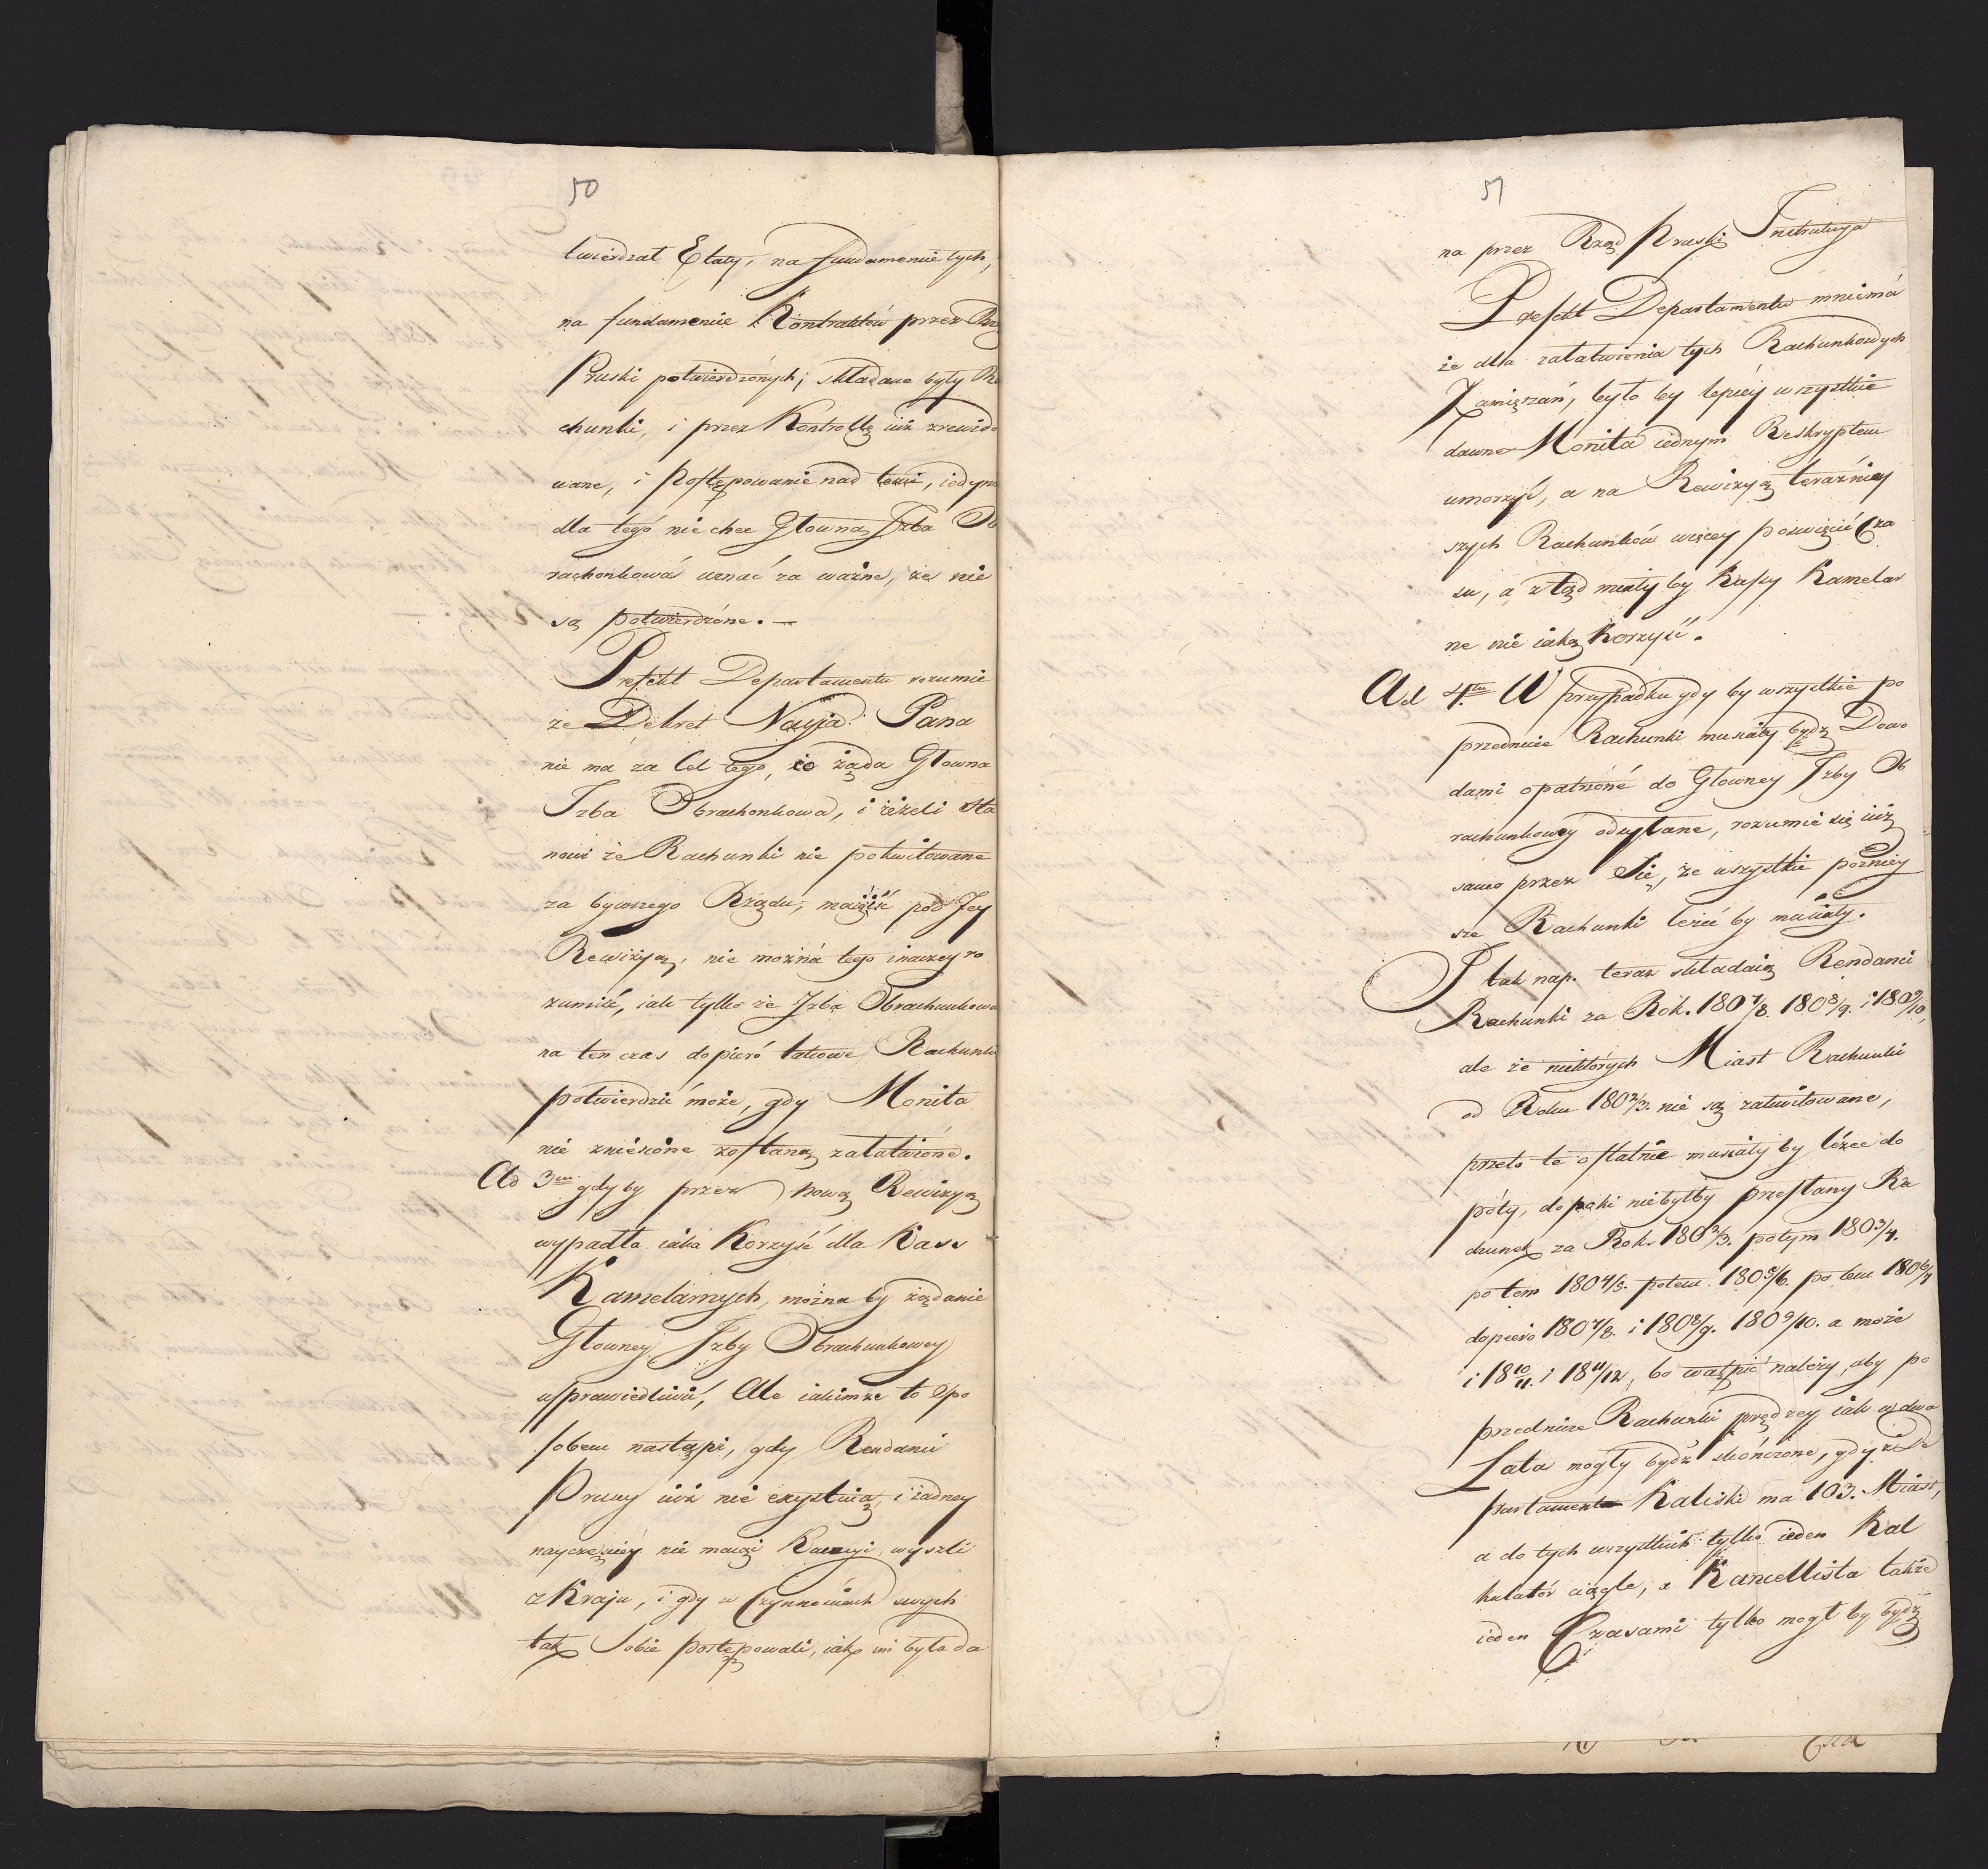 50
twierdzał Etaty, na fundamencie tych,
na fundamencie Kontraktów przez Rzą
Pruski potwierdzonych, składane były Ra
chunki, i przez Kontrollę iuż zrewido
wane, i Postępowanie nad temi, iedyni
dla tego nie chce Głowna Izba Ob
rachonkowa uznać za ważne, że nie
są potwierdzone. —
Prefekt Departamentu rozumie
że Dekret Nayja: Pana
nie ma za Cel tego, co żąda Głowna
Izba Obrachonkowa, i ieżeli sta
nowi że Rachunki nie pokwitowane
za bywszego Rządu, maią iść pod Jey
Rewizyą, nie można tego inaczey ro
zumić, iak tylko że Izba Obrachunkowa
na ten czas dopiero takowe Rachunki
potwierdzić może, gdy Monita
nie zniesione zostaną załatwione.
Ad 3um gdyby przez nową Rewizyą
wypadła iaka Korzyść dla Kass
Kamelarnych, można by żądanie
Głowney Izby Obrachunkowey
usprawiedliwić, Ale iakimże to Spo
sobem nastąpi, gdy Rendanci
Pruscy iuż nie exystuią, i żadney
nayczęściey nie maią Kaucyi, wyszli
z Kraju, i gdy w Czynnościach swych
tak Sobie postępowali, iak im była da
51
na przez Rząd Pruski Instrukcya
Prefekt Departamentu mniema
że dla załatwienia tych Rachunkowych
Zamięszań, było by lepiey wszystkie
dawne Monita iednym Reskryptem
umorzyć, a na Rewizyą teraźniey
szych Rachunków więcey poświęcić Cza
su, a ztąd miały by Kassy Kamelar
ne nie iaką Korzyść.
Ad 4tum W przypadku gdy by wszystkie po
przednicze Rachunki musiały bydź Dowo
dami opatrzone do Głowney Izby Ob
rachunkowey odesłane, rozumie się iuż
samo przez Się, że wszystkie poźniey
sze Rachunki leżeć by musiały.
I tak nap. teraz składaią Rendanci
Rachunki za Rok. 1807/8. 1808/9. i 1809/10,
ale że niektórych Miast Rachunki
od Roku 1802/3. nie są zakwitowane,
przeto te ostatnie musiały by leżeć do
póty, dopoki nie byłby przesłany Ra
chunek za Rok 1802/3. potym 1803/4.
potem 1804/5. potem 1805/6. potem 1806/7
dopiero 1807/8. i 1808/9. 1809/10. a może
i 1810/11. i 1811/12, bo wątpić należy, aby po
przednicze Rachunki prędzey iak w dwa
Lata mogły bydź skończone, gdyż De
partament Kaliski ma 103. Miast,
a do tych wszystkich tylko ieden Kal
kulator ciągle, a Kancellista także
ieden Czasami tylko mogł by bydź